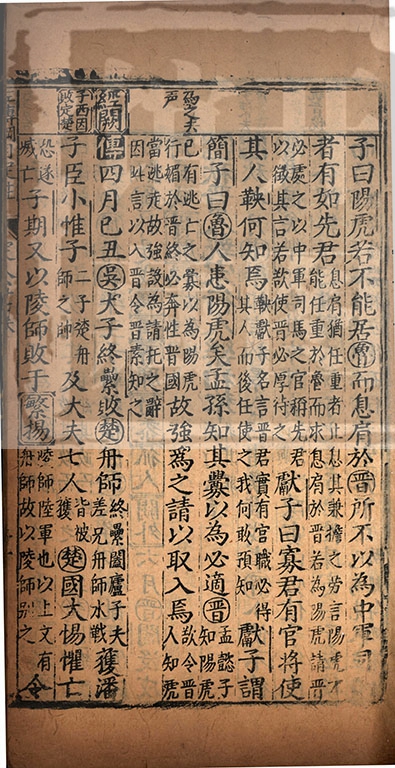 子曰陽虎若不能居魯而息肩於晉所不以為中軍司
者有如先君
息肩猶任重者止息其兼擔之勞言陽虎不
能任重於魯而求息肩於晉若為陽虎請晉
必處之以中軍司馬之官稱先君
以徵其言若欲使晉必厚待之
獻子曰寡君有官將使
其人鞅何知焉
鞅獻子名言晉君實有官職必得
其人而後任使之我何敢預知
獻子謂
簡子曰魯人患陽虎矣孟孫知其釁以為必適晉
孟懿子
知陽虎
已有逃亡之釁以為
行媚於晉終必奔性晉國
故強為之請以取入焉
欲令晉
人知虎
當逃走故強設為請托之辭
因此言以入晉令晉素知之
經闕
傳四月己丑吳大子終纍敗楚舟師
終纍闔廬子夫
差兄舟師水戰
獲潘
子西因
敗定楚
子臣小惟子
二子楚舟
師之帥
及大夫七人
皆被
獲
楚國大惕懼亡
恐遂
滅亡
子期又以陵師敗于繁揚
陵師陸軍也以上文有
舟師故以陵師別之
令